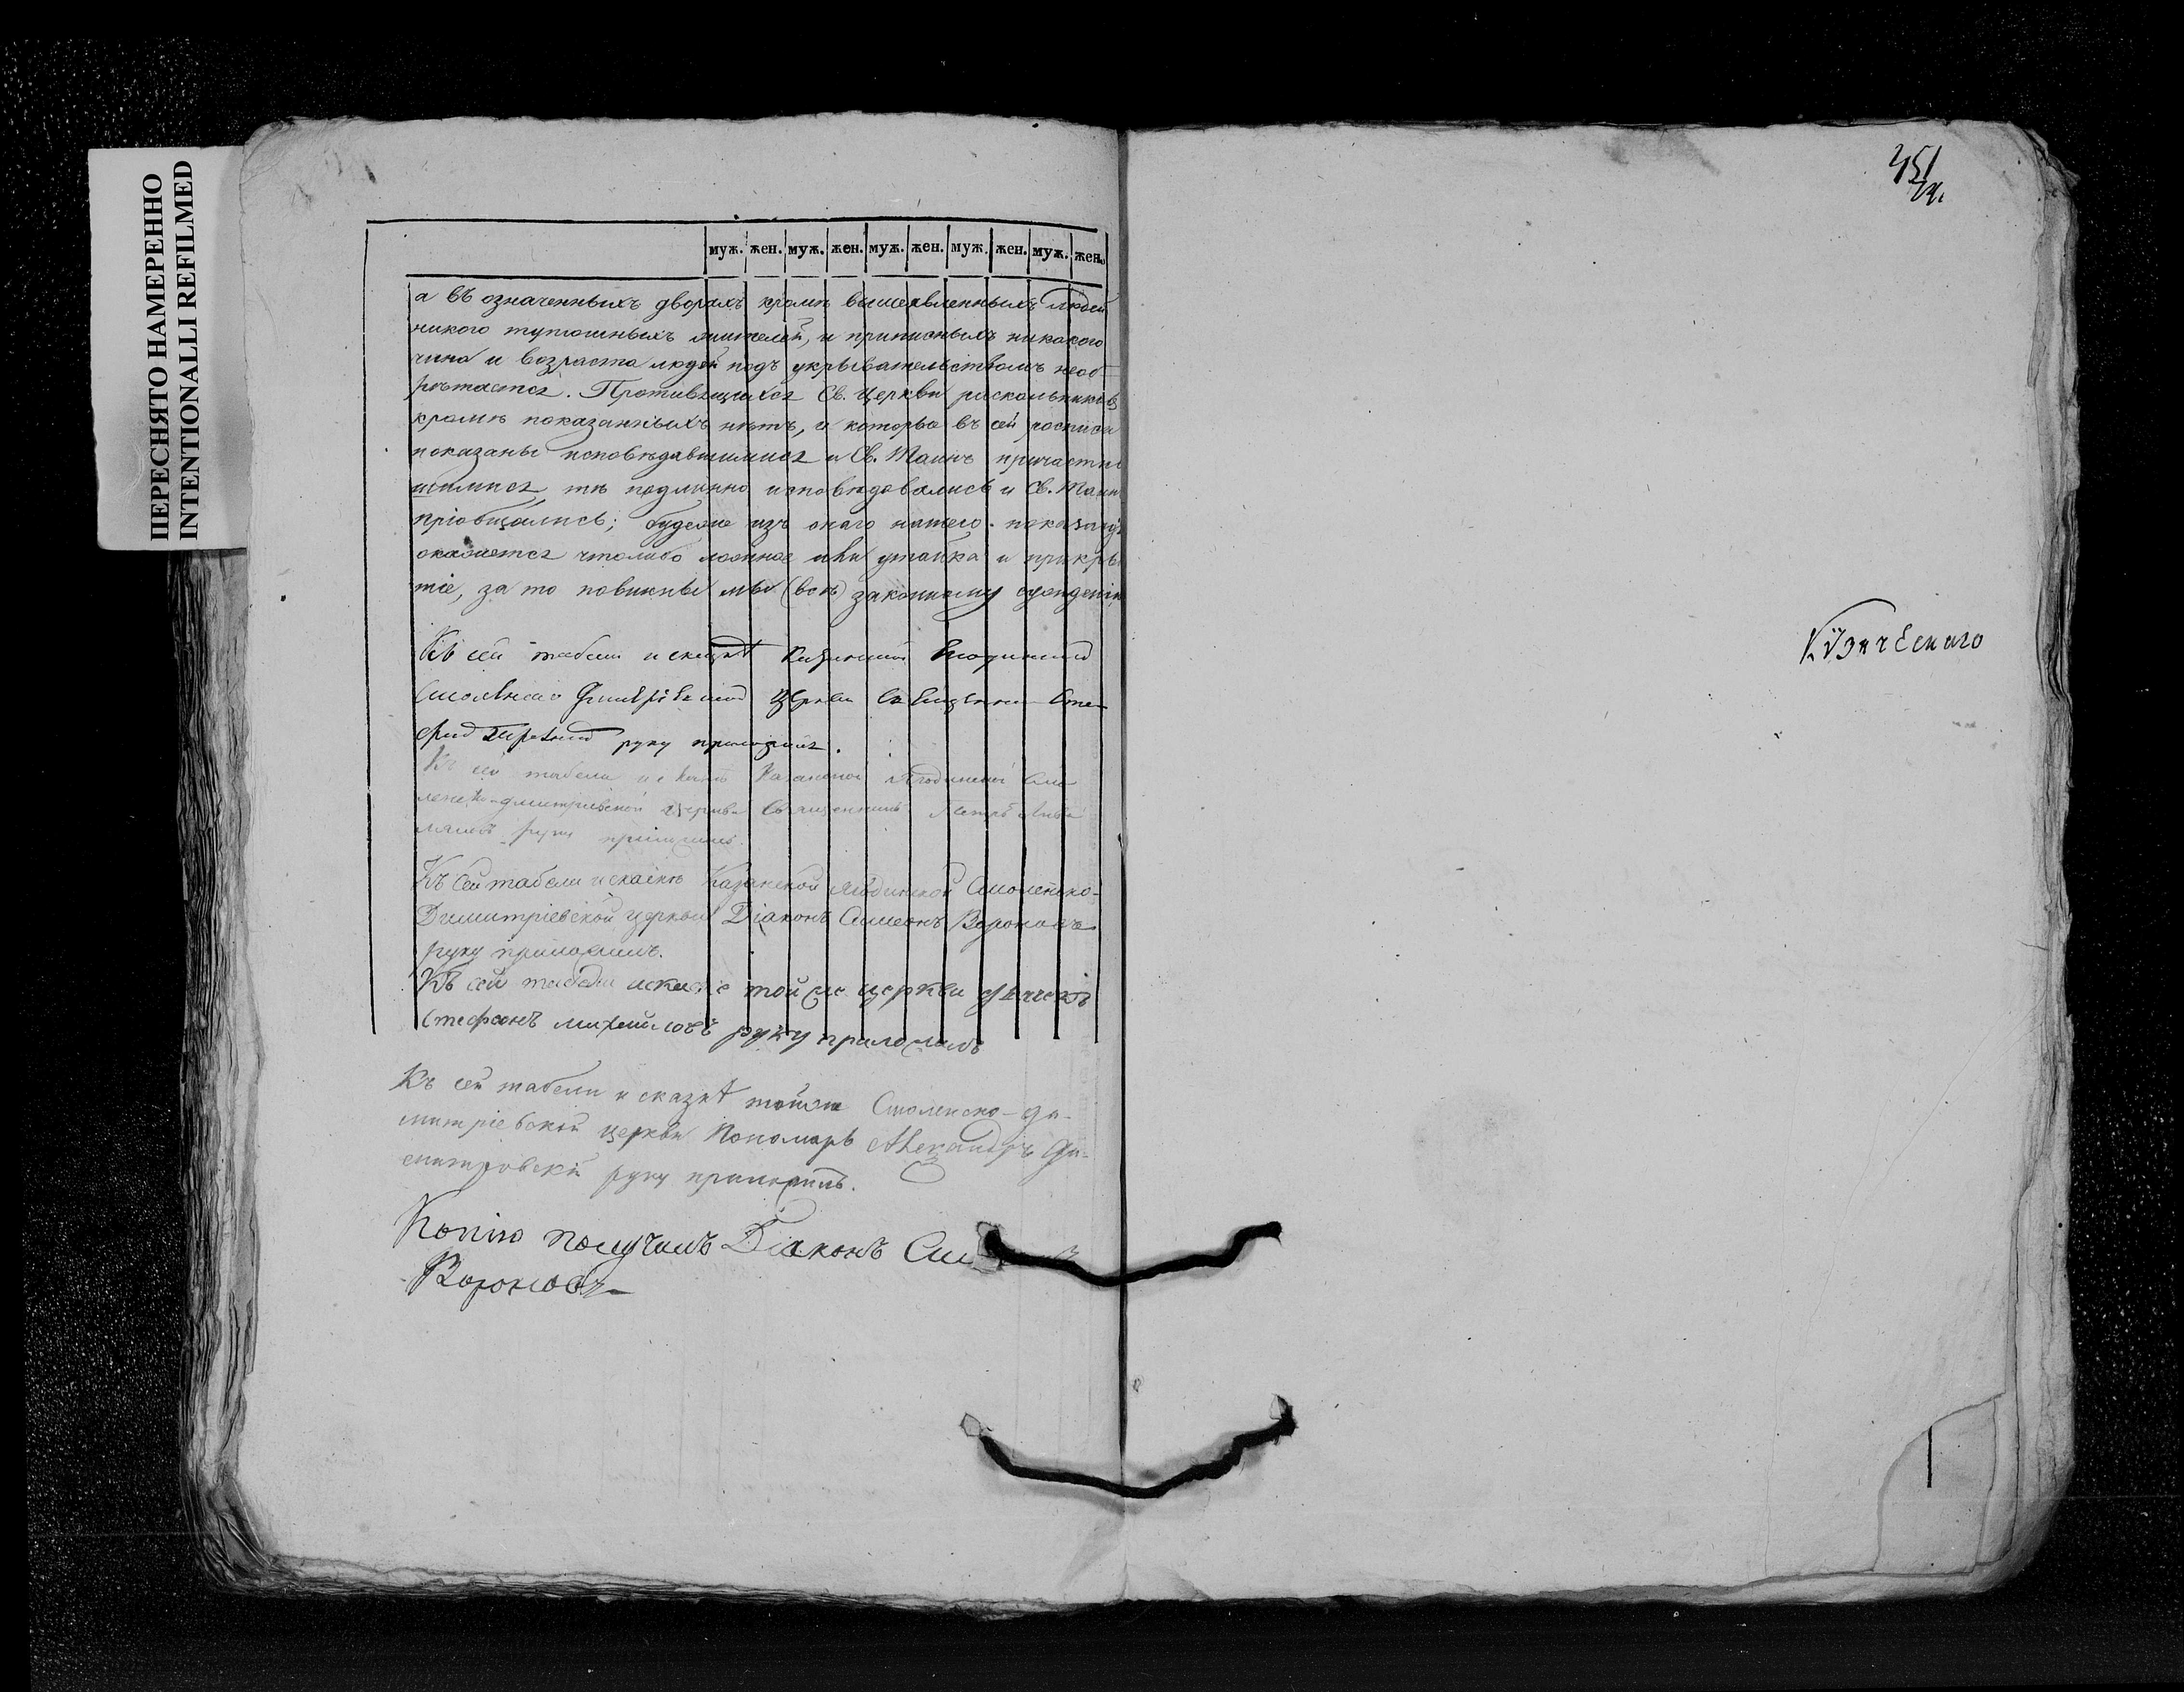 ПЕРЕСНЯТО НАМЕРЕННО
INTENTIONALLI REFILMED
муж. жен. муж. жен. муж. жен. муж. жен. муж. жен.
а въ означенныхъ дворахъ кромѣ вышеявленныхъ людей
никого тутошныхъ жителей, и приписныхъ никакого
чина и возраста людей подъ укрывательствомъ необ-
рѣтается. Противящихся Св. Церкви раскольниковъ
кромѣ показанныхъ нѣтъ, и которые въ сей росписи
показаны исповѣдавшимися и Св. Таинъ причастив
шимися, тѣ подлинно исповѣдовались и Св. Таинъ
пріобщались; будеже изъ онаго нашего показанія
окажется чтолибо ложное или утайка и прикры
тіе, за то повинны мы (всѣ) законному сужденію
Къ сей табели и сказкѣ Казанской Ягодинской
Смоленско Димитріевской Церкви Священникъ Сте-
фанъ руку приложилъ.
Къ сей табели и сказкѣ Казанской Ягодинской Смо
ленско-Димитріевской Церкви Священникъ Петръ
руку приложилъ.
Къ сей табели и сказкѣ Казанской Ягодинской Смоленско-
Димитріевской церкви Діаконъ Симеонъ Вороновъ
руку приложилъ.
Къ сей табели и сказкѣ той же церкви дьячекъ
Стефанъ Михайловъ руку приложилъ
Къ сей табели и сказкѣ тойже Смоленско-Ди-
митріевской церкви Пономарь Александръ Ди-
митровскій руку приложилъ.
Копію получилъ Діаконъ Сим
Вороновъ
451
Кузнческаго